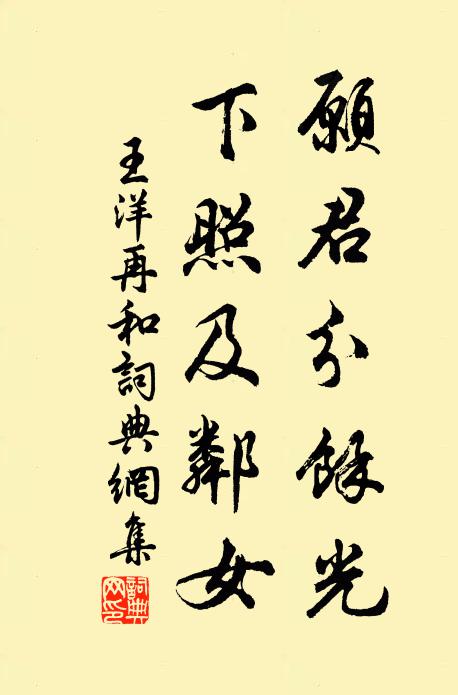 願君分餘光
下照及鄰女
王洋再和詞典網集
詞典网印